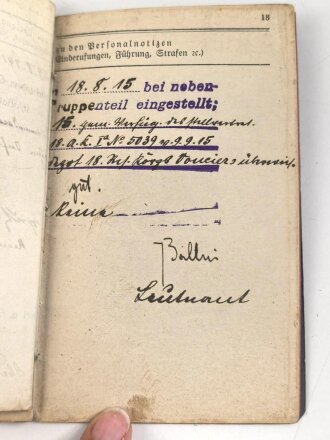 18
zu den Personalnotizen
Einberufungen, Führung, Strafen ꝛc.)
18.8.15 bei neben-
ruppenteil eingestellt;
15. gem. Verfüg. des stellvertret.
18. a.k. Iᵃ Nº 5039 v. 9.9.15
18.
gut.
Keine
Leutnant